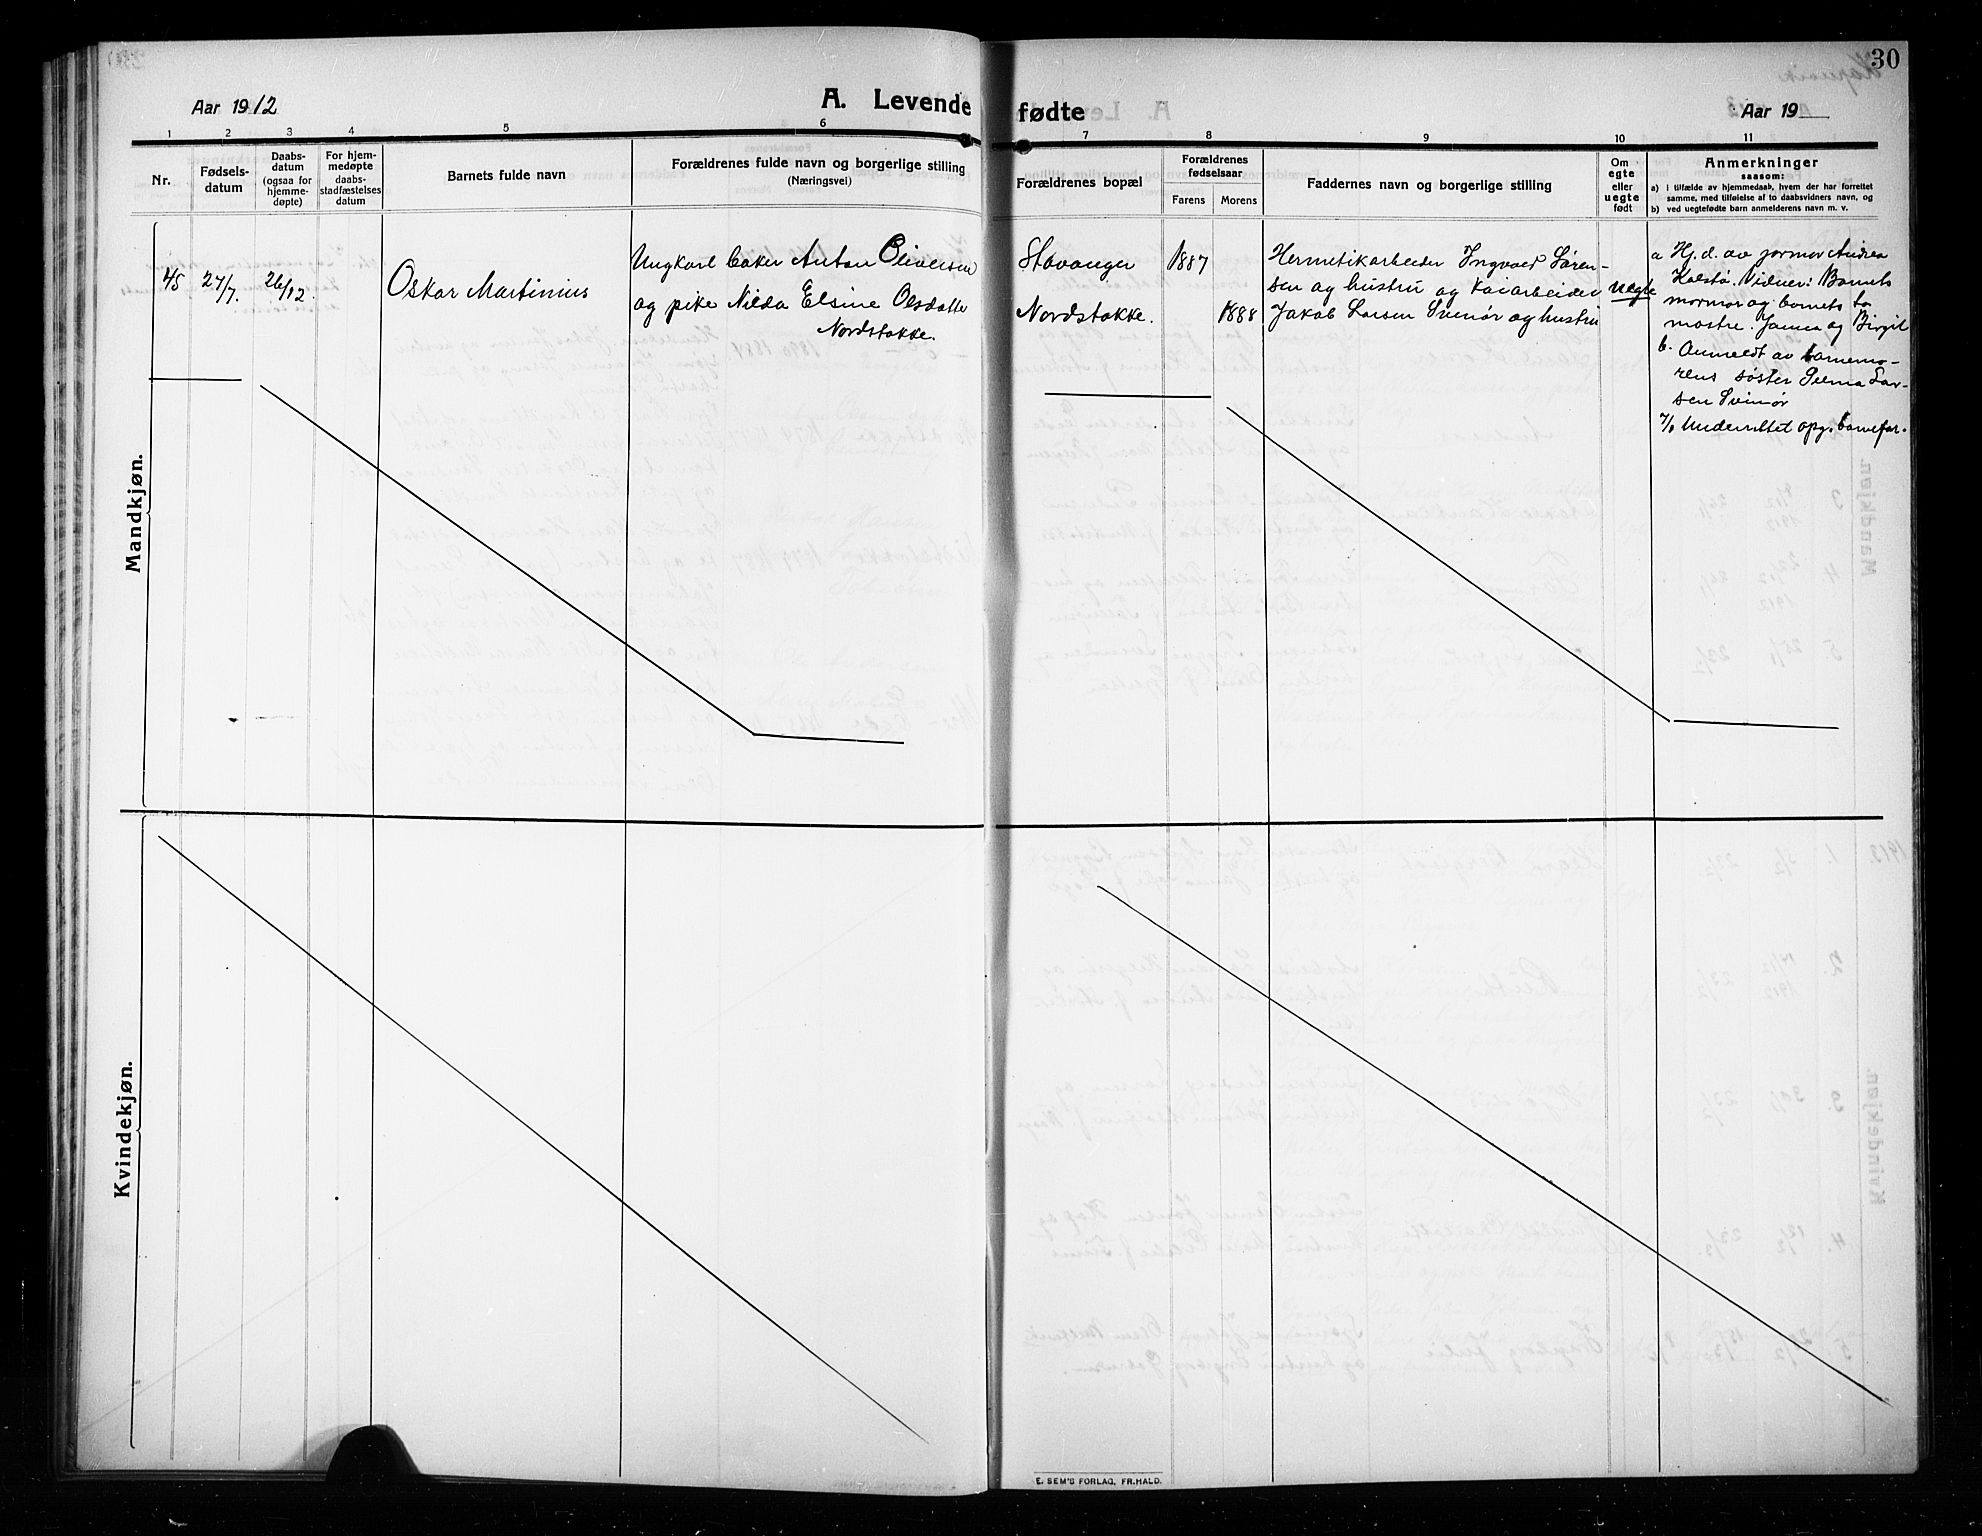 30
Aar 1912
A. Levende fødte
Aar 19
1 2 3 4 5 6 7 8 9 10 11
Nr.
Fødsels-
datum
Daabs-
datum
(ogsaa for
hjemme-
døpte)
For hjem-
medøpte
daabs-
stadfæstelses
datum
Barnets fulde navn
Forældrenes fulde navn og borgerlige stilling
(Næringsvei)
Forældrenes bopæl
Forældrenes
fødselsaar
Farens Morens
Faddernes navn og borgerlige stilling
Om
egte
eller
uegte
født
Anmerkninger
saasom:
a) i tilfælde av hjemmedaab, hvem der har forrettet
samme, med tilføielse af to daabsvidners navn, og
b) ved uegtefødte barn anmelderens navn m. v.
Mandkjøn.
45 27/7. 26/12.
Oskar Martinius
Ungkarl baker Anton Oliversen
og pike Nilda Elsine Olsdatter
Nordstokke.
Stavanger
Nordstokke.
1887
1888
Hermetikarbeider Ingvald Søren-
sen og hustru og kaiarbeider
Jakob Larsen Svinør og hustru
uegte
a Hj. d. av jormor Andrea
Holstø. Vidner: Barnets
mormor og barnets to
mostre. Janna og Birgit
b. Anmeldt av barnemo-
rens søster Selma Lar-
sen Svinør
Underrettet opg. barnefar.
Kvindekjøn.
E. SEM'S FORLAG, FR.HALD.